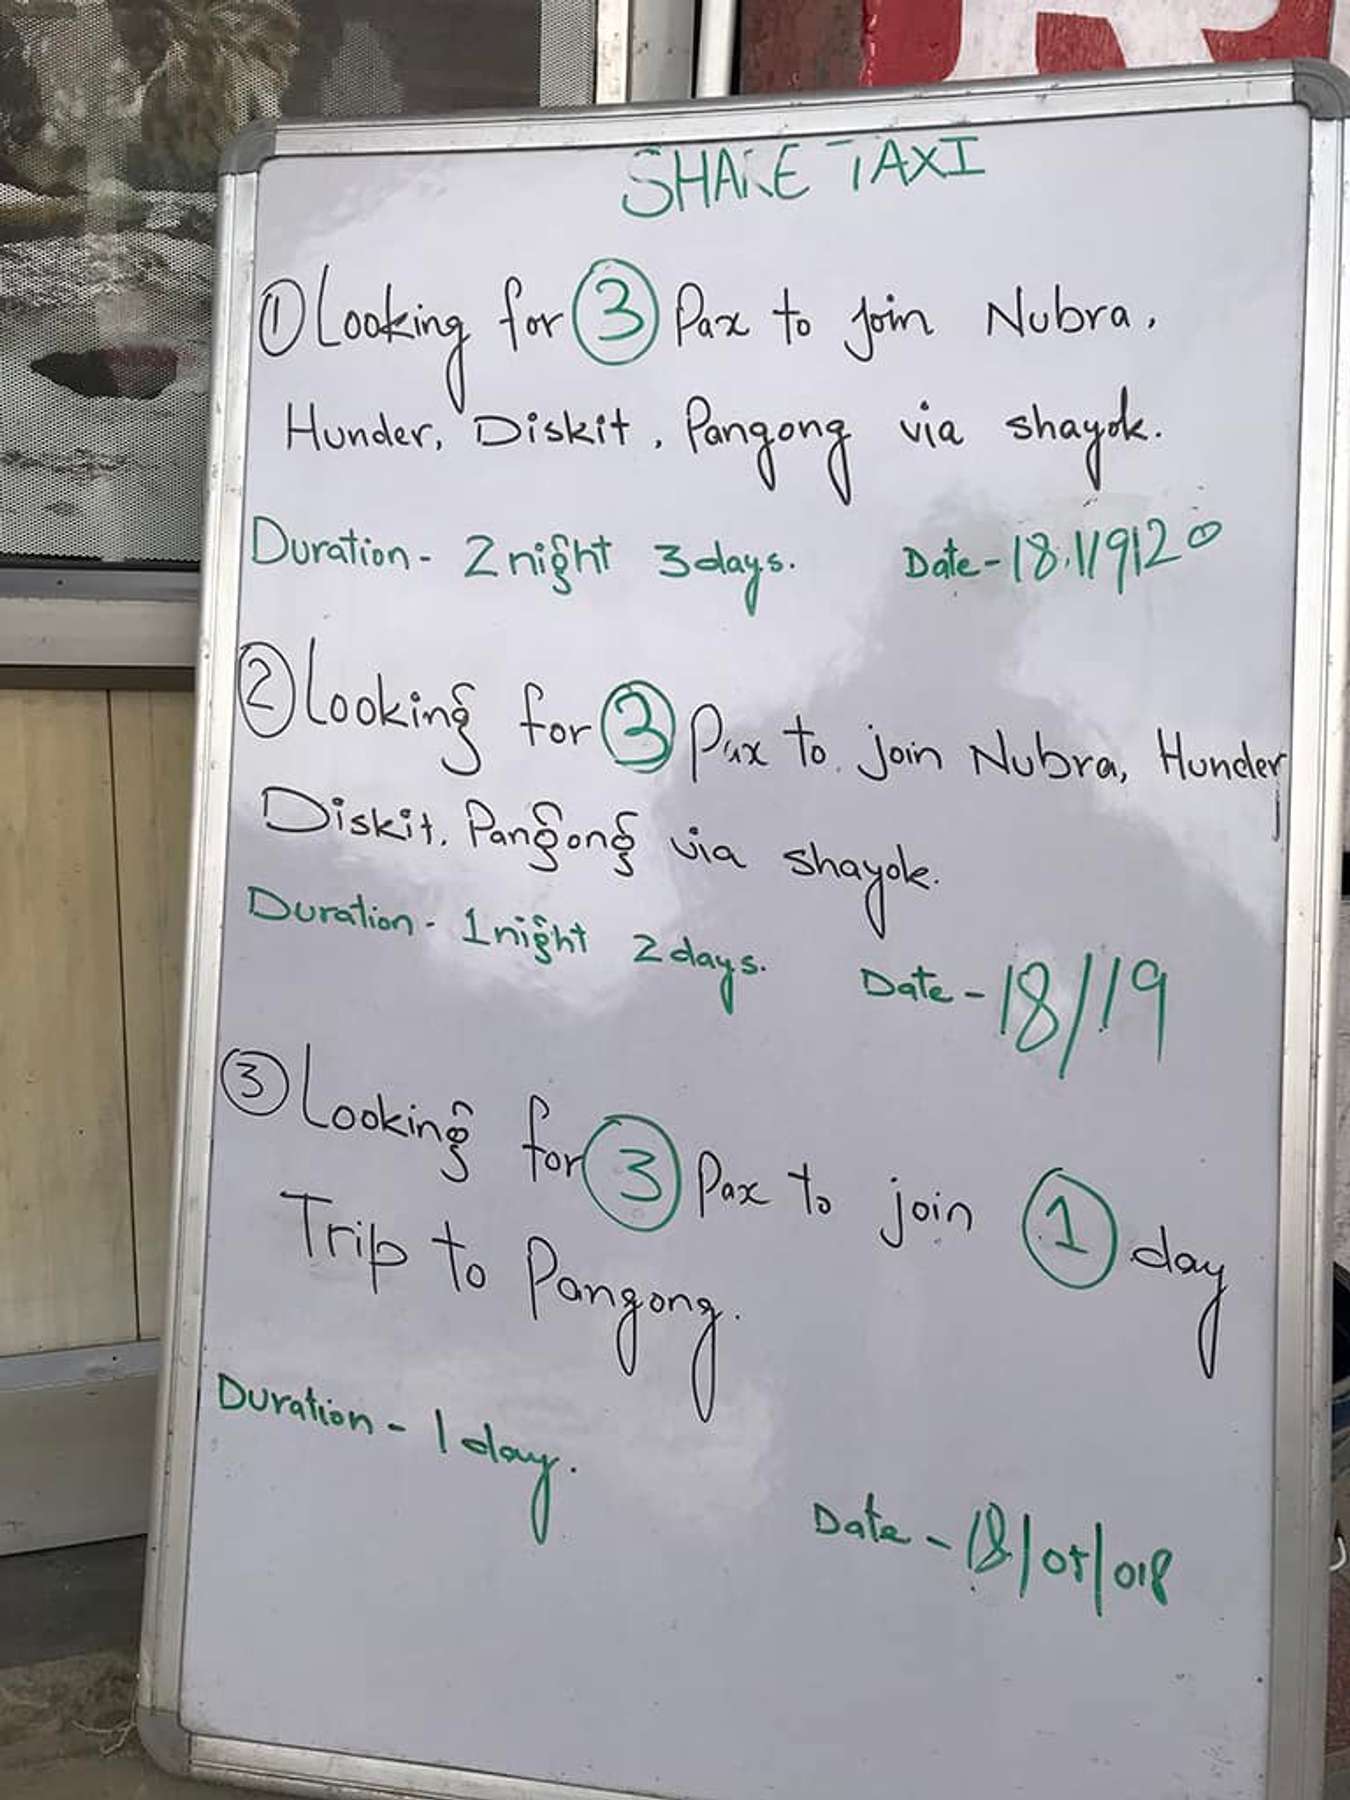 SHARE TAXI
① Looking for ③ Pax to join Nubra,
Hunder, Diskit, Pangong via shayok.
Duration - 2 night 3 days. Date - 18/19/20
② Looking for ③ Pax to join Nubra, Hunder
Diskit, Pangong via shayok.
Duration - 1 night 2 days. Date - 18/19
③ Looking for ③ Pax to join ① day
Trip to Pangong.
Duration - 1 day.
Date - 18/05/018